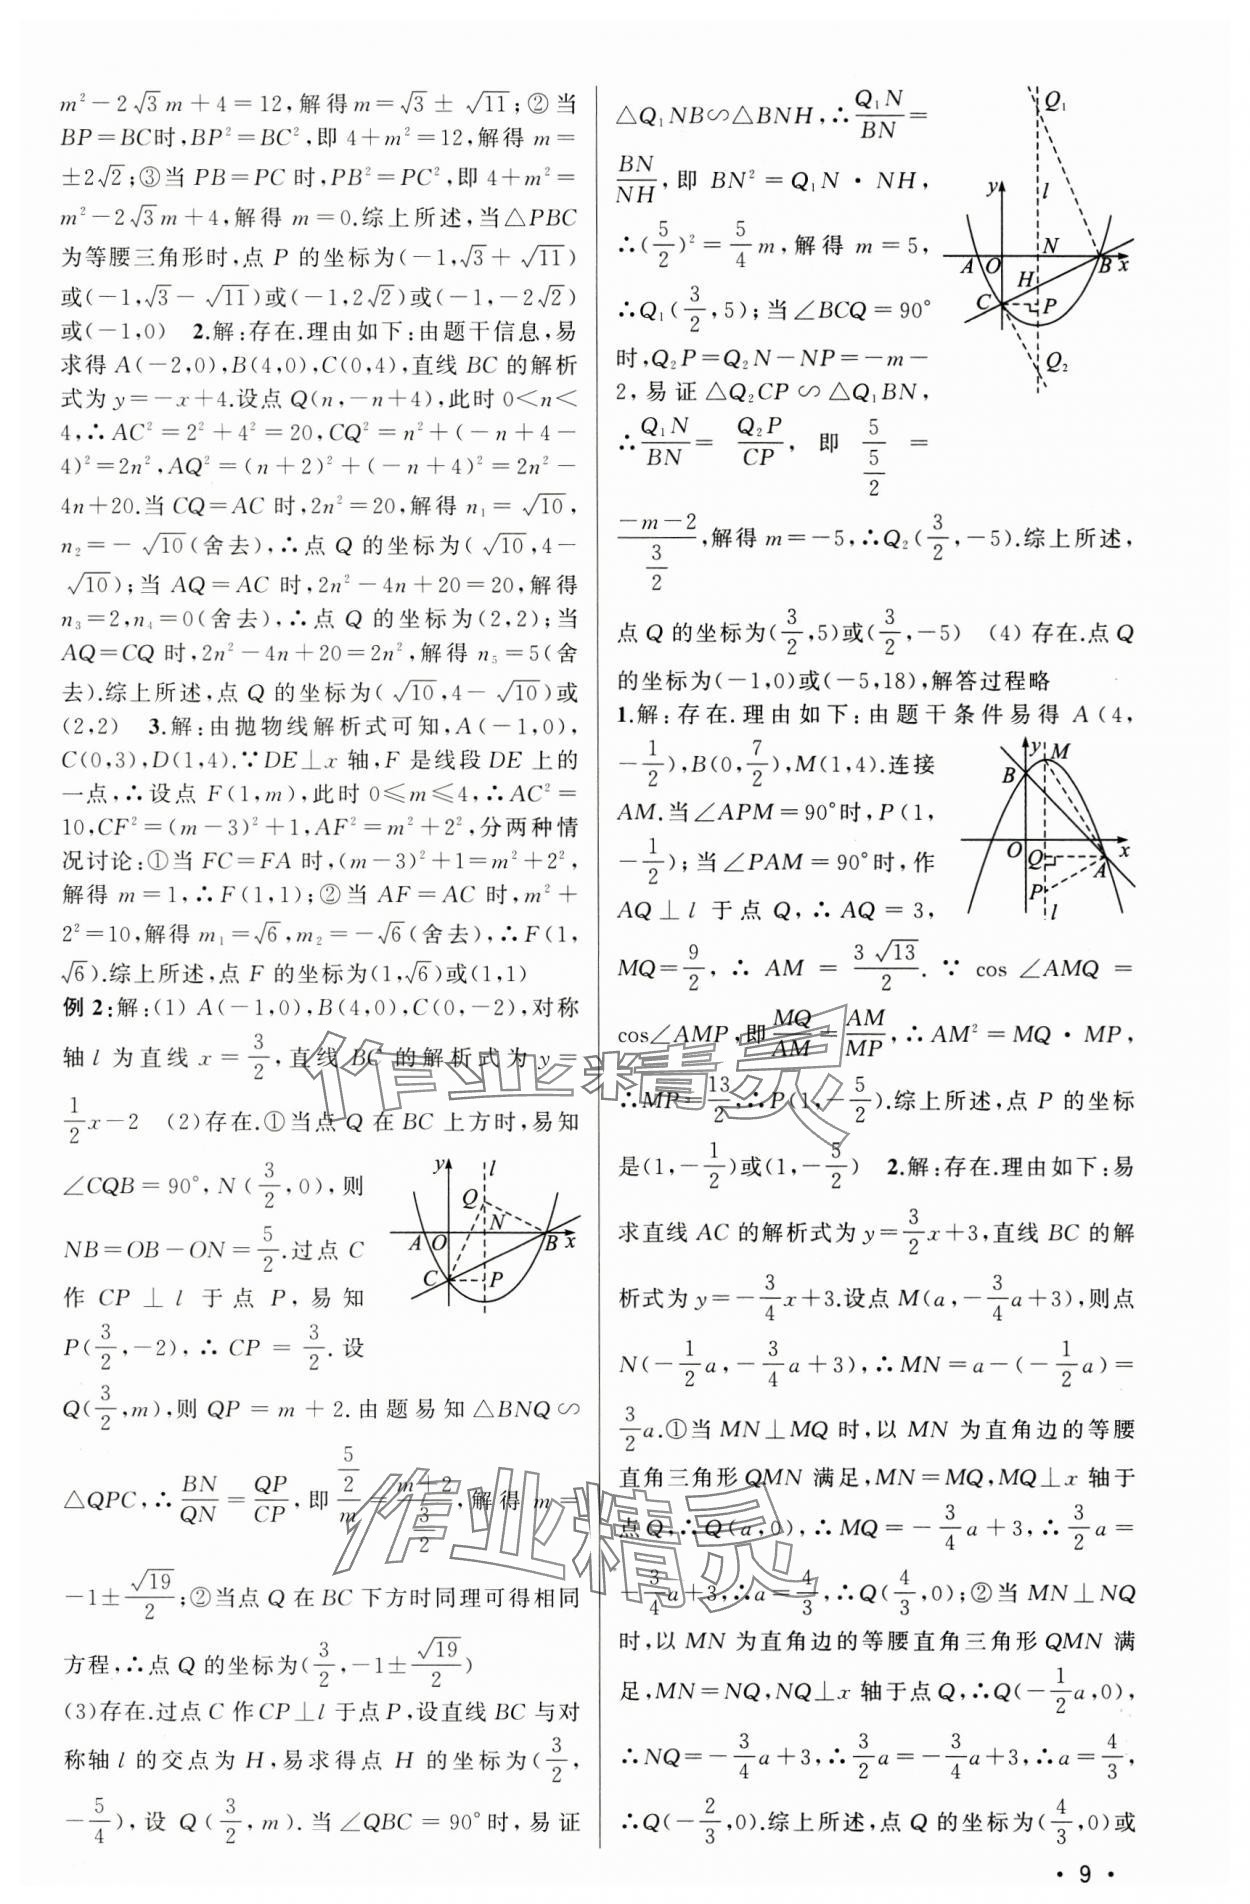 m²-2√3m+4=12,解得m=√3±√11;②当
BP=BC时,BP²=BC²,即4+m²=12,解得m=
±2√2;③当PB=PC时,PB²=PC²,即4+m²=
m²-2√3m+4,解得m=0.综上所述,当△PBC
为等腰三角形时,点P的坐标为(-1,√3+√11)
或(-1,√3-√11)或(-1,2√2)或(-1,-2√2)
或(-1,0) 2.解:存在.理由如下:由题干信息,易
求得A(-2,0),B(4,0),C(0,4),直线BC的解析
式为y=-x+4.设点Q(n,-n+4),此时0<n<
4,∴AC²=2²+4²=20,CQ²=n²+(-n+4-
4)²=2n²,AQ²=(n+2)²+(-n+4)²=2n²-
4n+20.当CQ=AC时,2n²=20,解得n₁=√10,
n₂=-√10(舍去),∴点Q的坐标为(√10,4-
√10);当AQ=AC时,2n²-4n+20=20,解得
n₃=2,n₄=0(舍去),∴点Q的坐标为(2,2);当
AQ=CQ时,2n²-4n+20=2n²,解得n₅=5(舍
去).综上所述,点Q的坐标为(√10,4-√10)或
(2,2) 3.解:由抛物线解析式可知,A(-1,0),
C(0,3),D(1,4).∵DE⊥x轴,F是线段DE上的
一点,∴设点F(1,m),此时0≤m≤4,∴AC²=
10,CF²=(m-3)²+1,AF²=m²+2²,分两种情
况讨论:①当FC=FA时,(m-3)²+1=m²+2²,
解得m=1,∴F(1,1);②当AF=AC时,m²+
2²=10,解得m₁=√6,m₂=-√6(舍去),∴F(1,
√6).综上所述,点F的坐标为(1,√6)或(1,1)
例2:解:(1)A(-1,0),B(4,0),C(0,-2),对称
轴l为直线x=3/2,直线BC的解析式为y=
1/2x-2 (2)存在.①当点Q在BC上方时,易知
∠CQB=90°,N(3/2,0),则
NB=OB-ON=5/2.过点C
作CP⊥l于点P,易知
P(3/2,-2),∴CP=3/2.设
y l Q N A O B x C P
Q(3/2,m),则QP=m+2.由题易知△BNQ∽
△QPC,∴BN/QN=QP/CP,即(5/2)/m=(m+2)/(3/2),解得m=
-1±√19/2;②当点Q在BC下方时同理可得相同
方程,∴点Q的坐标为(3/2,-1±√19/2)
(3)存在.过点C作CP⊥l于点P,设直线BC与对
称轴l的交点为H,易求得点H的坐标为(3/2,
-5/4),设Q(3/2,m).当∠QBC=90°时,易证
△Q₁NB∽△BNH,∴Q₁N/BN=
BN/NH,即BN²=Q₁N·NH,
∴(5/2)²=5/4m,解得m=5,
∴Q₁(3/2,5);当∠BCQ=90°
时,Q₂P=Q₂N-NP=-m-
2,易证△Q₂CP∽△Q₁BN,
∴Q₁N/BN=Q₂P/CP,即5/(5/2)=
Q₁ y l A O N B x H C P Q₂
(-m-2)/(3/2),解得m=-5,∴Q₂(3/2,-5).综上所述,
点Q的坐标为(3/2,5)或(3/2,-5) (4)存在.点Q
的坐标为(-1,0)或(-5,18),解答过程略
1.解:存在.理由如下:由题干条件易得A(4,
-1/2),B(0,7/2),M(1,4).连接
AM.当∠APM=90°时,P(1,
-1/2);当∠PAM=90°时,作
AQ⊥l于点Q,∴AQ=3,
y M B O x Q A P l
MQ=9/2,∴AM=3√13/2.∵cos∠AMQ=
cos∠AMP,即MQ/AM=AM/MP,∴AM²=MQ·MP,
∴MP=13/2,∴P(1,-5/2).综上所述,点P的坐标
是(1,-1/2)或(1,-5/2) 2.解:存在.理由如下:易
求直线AC的解析式为y=3/2x+3,直线BC的解
析式为y=-3/4x+3.设点M(a,-3/4a+3),则点
N(-1/2a,-3/4a+3),∴MN=a-(-1/2a)=
3/2a.①当MN⊥MQ时,以MN为直角边的等腰
直角三角形QMN满足,MN=MQ,MQ⊥x轴于
点Q,∴Q(a,0),∴MQ=-3/4a+3,∴3/2a=
-3/4a+3,∴a=4/3,∴Q(4/3,0);②当MN⊥NQ
时,以MN为直角边的等腰直角三角形QMN满
足,MN=NQ,NQ⊥x轴于点Q,∴Q(-1/2a,0),
∴NQ=-3/4a+3,∴3/2a=-3/4a+3,∴a=4/3,
∴Q(-2/3,0).综上所述,点Q的坐标为(4/3,0)或
·9·
作业精灵
作业精灵